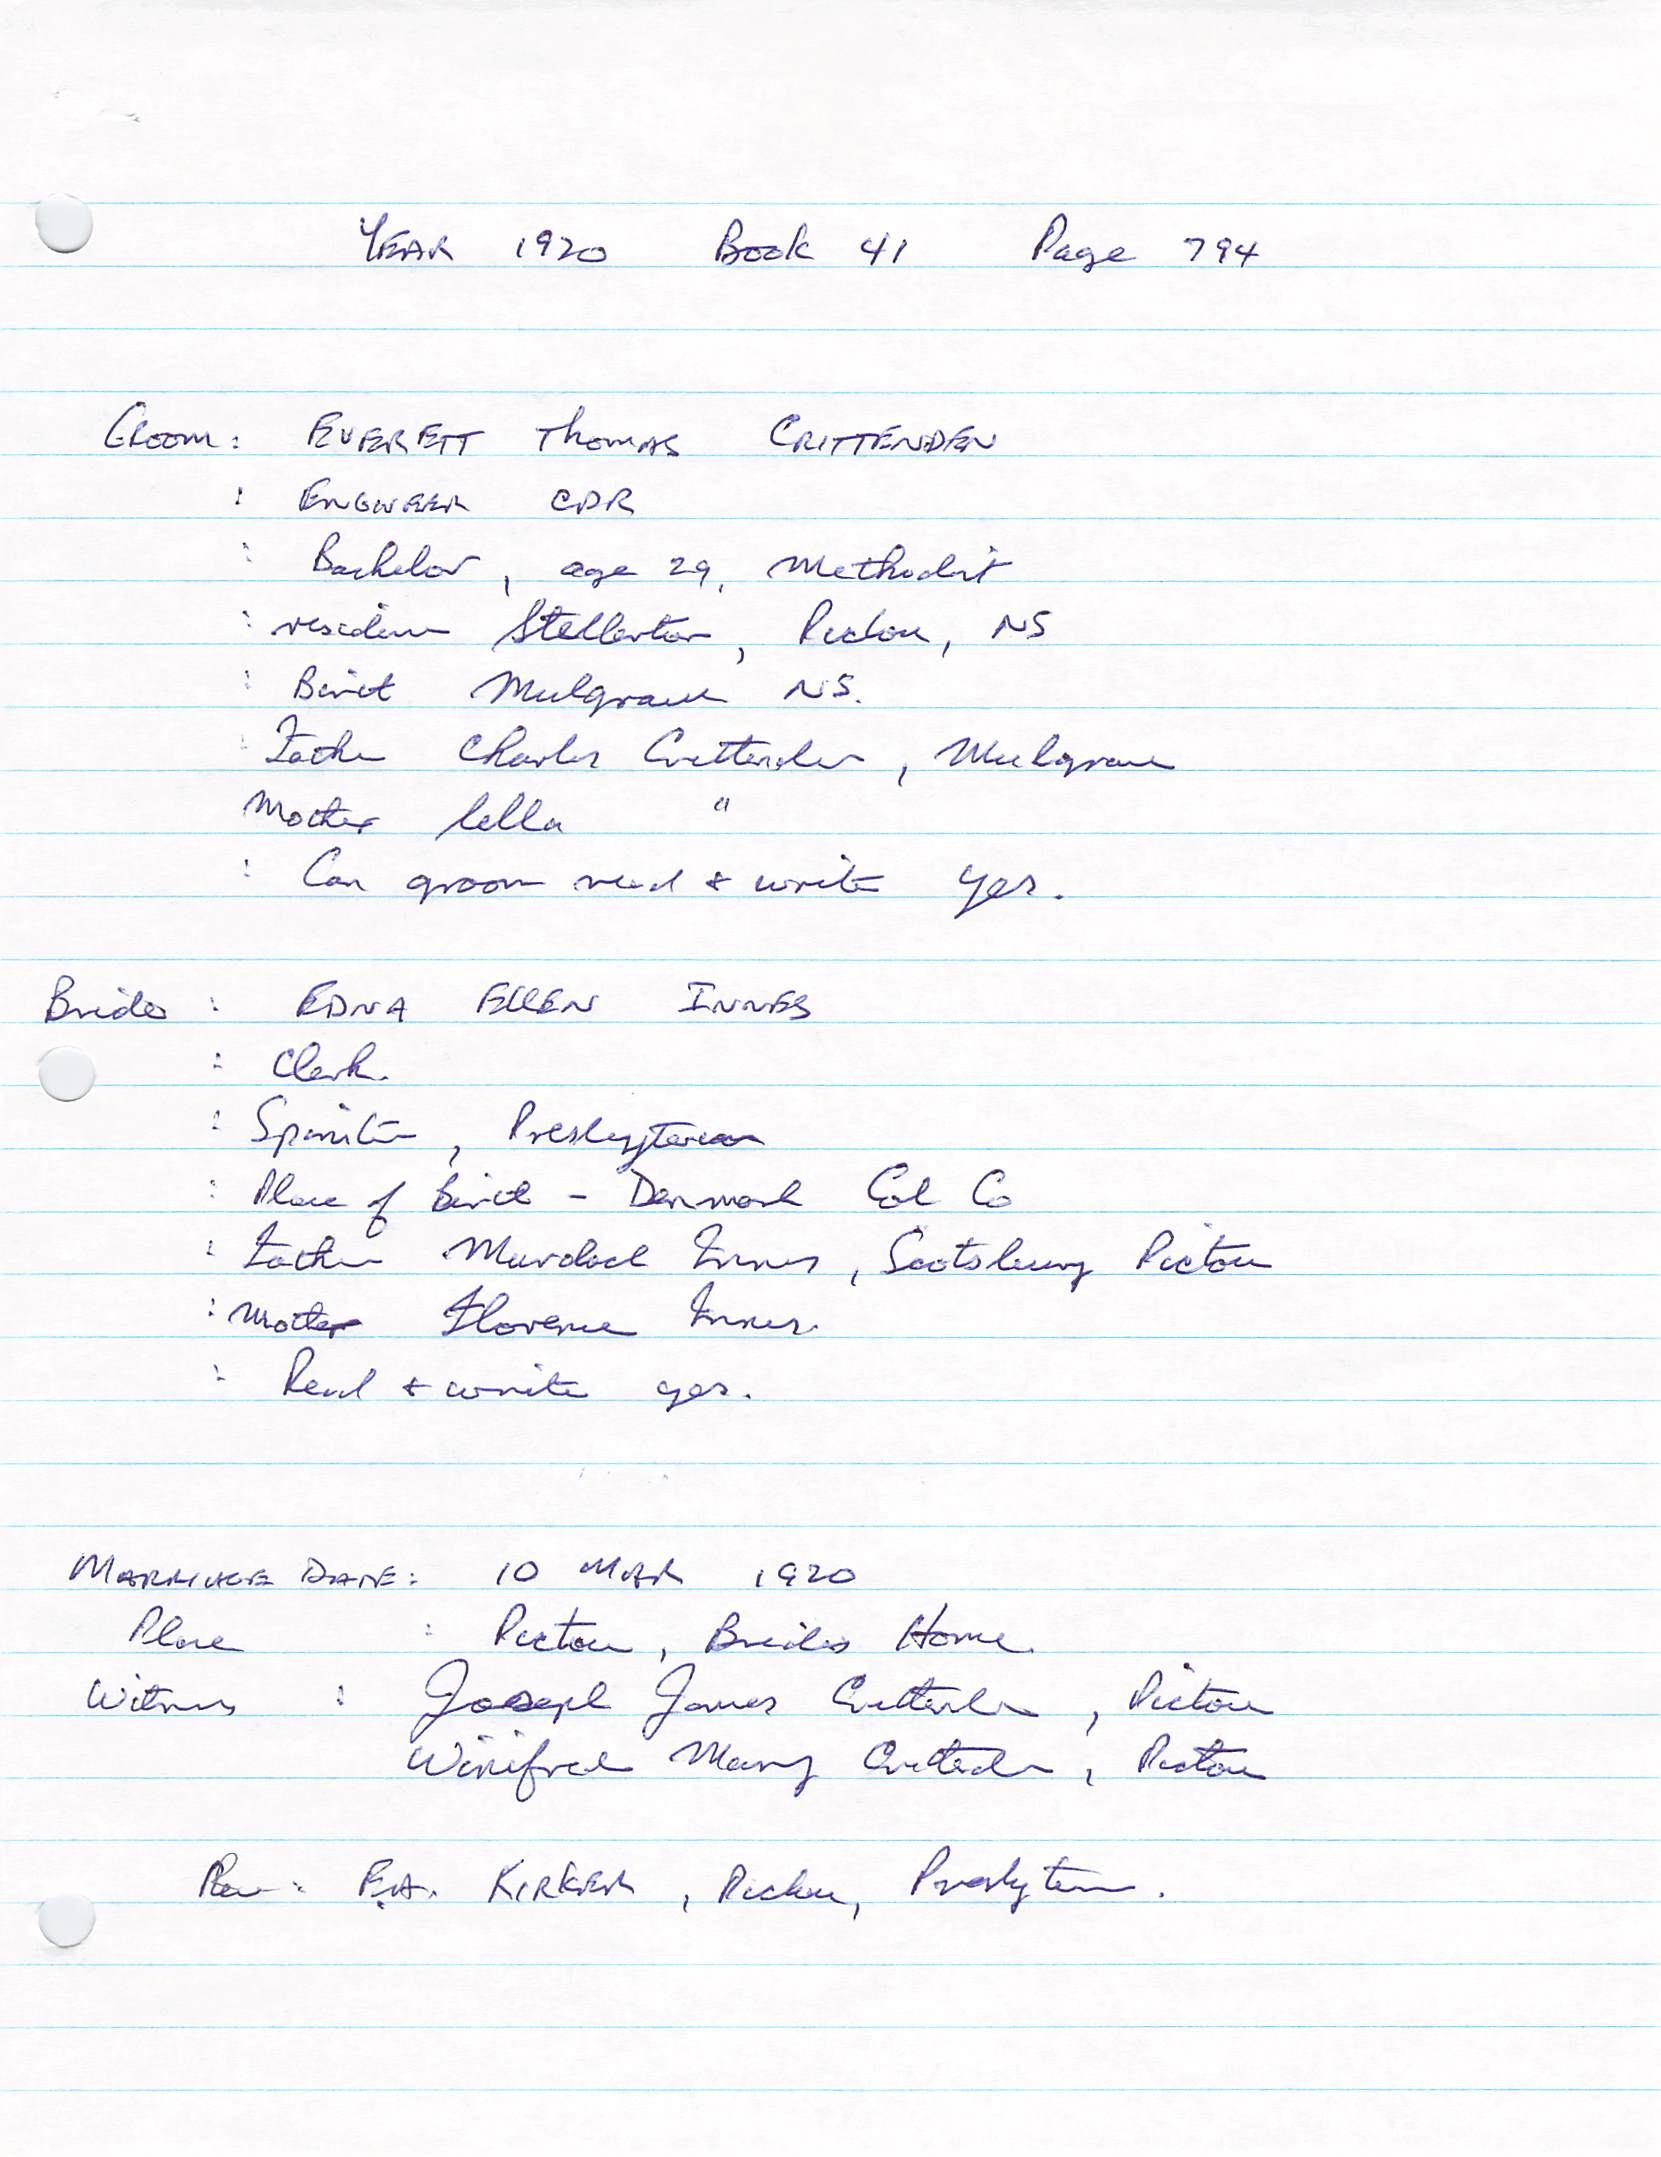 YEAR 1920 Book 41 Page 794
Groom: EVERETT Thomas CRITTENDEN
: ENGINEER CDR
: Bachelor, age 29, Methodist
: residence Stellarton, Pictou, NS
: Birth Mulgrave NS.
: Father Charles Crittenden, Mulgrave
Mother Lella "
: Can groom read & write yes.
Brides : EDNA ELLEN INNES
: Clerk.
: Spinster, Presbyterian
: Place of Birth - Denmark Col Co
: Father Murdoch Innes, Scotsburg Pictou
: Mother Florence Innes.
: Read & write yes.
MARRIAGE DATE: 10 MAR 1920
Place : Pictou, Brides Home.
Witness : Joseph James Crittenden, Pictou
Winifred Mary Crittenden, Pictou
Rev: F.A. KIRKER, Pictou, Presbyterian.